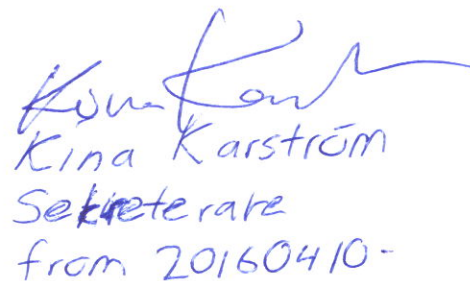 Kina Karström
Sekreterare
from 20160410-